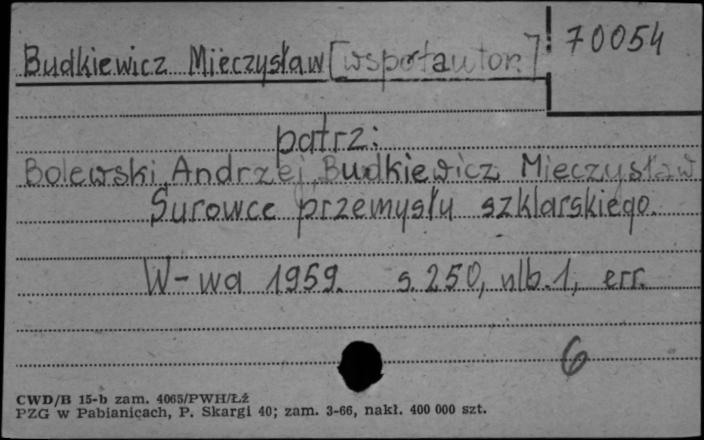 Budkiewicz Mieczysław [współautor]
70054
patrz:
Bolewski Andrzej, Budkiewicz Mieczysław
Surowce przemysłu szklarskiego.
W-wa 1959. s. 250, nlb. 1, err.
6
CWD/B 15-b zam. 4065/PWH/Łż
PZG w Pabianicach, P. Skargi 40; zam. 3-66, nakł. 400 000 szt.